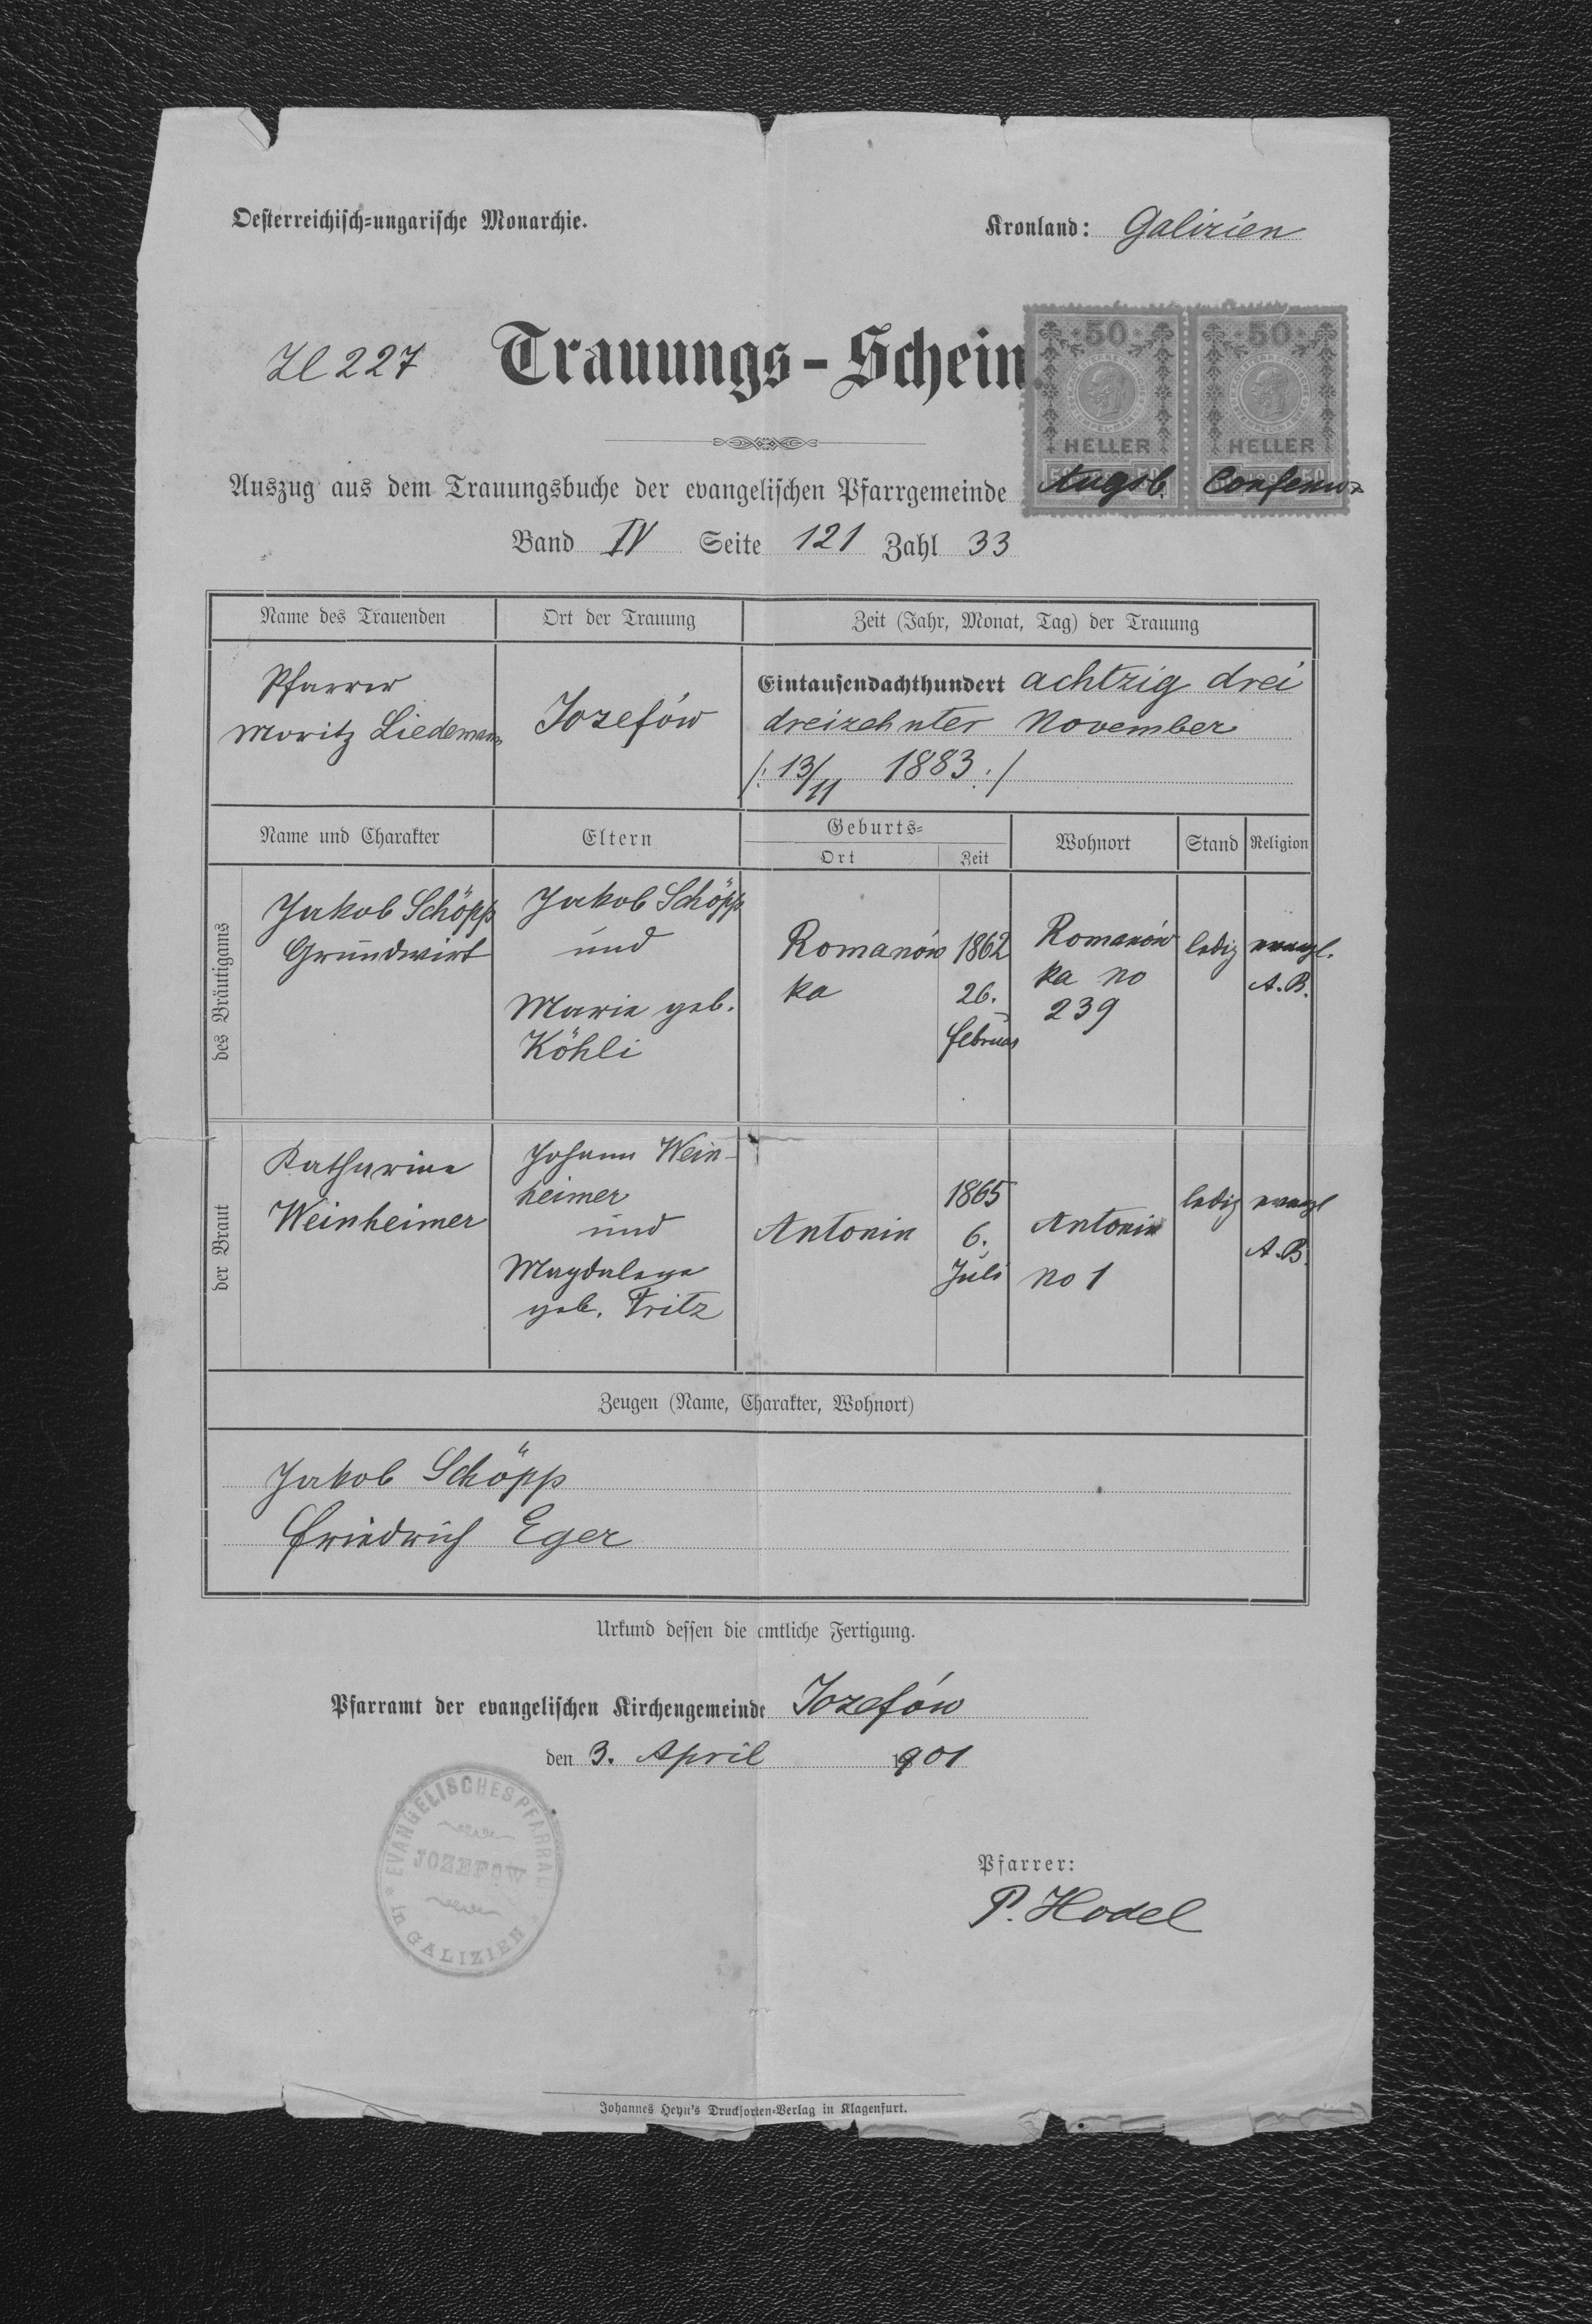 Oesterreichisch-ungarische Monarchie.
Kronland: Galizien
Zl 227
Trauungs-Schein.
50 50
HELLER HELLER
Auszug aus dem Trauungsbuche der evangelischen Pfarrgemeinde Augsb. Confession
Band IV Seite 121 Zahl 33
Name des Trauenden Ort der Trauung Zeit (Jahr, Monat, Tag) der Trauung
Pfarrer
Moritz Liedemann
Jozefów
Eintausendachthundert achtzig drei
dreizehnter November
/: 13/11 1883 :/
Name und Charakter Eltern Geburts= Ort Zeit Wohnort Stand Religion
des Bräutigams
Jakob Schöpp
Grundwirt
Jakob Schöpp
und
Marie geb.
Köhli
Romanów
ka
1862
26.
Februar
Romanów
ka no
239
ledig
evangl.
A. B.
der Braut
Katharina
Weinheimer
Johann Wein-
heimer
und
Magdalena
geb. Fritz
Antonin
1865
6.
Juli
Antonin
no 1
ledig
evangl
A. B.
Zeugen (Name, Charakter, Wohnort)
Jakob Schöpp
Friedrich Eger
Urkund dessen die amtliche Fertigung.
Pfarramt der evangelischen Kirchengemeinde Jozefów
den 3. April 1901
EVANGELISCHES PFARRA
JOZEFOW
in GALIZIEN
Pfarrer:
P. Hodel
Johannes Heyn's Drucksorten-Verlag in Klagenfurt.